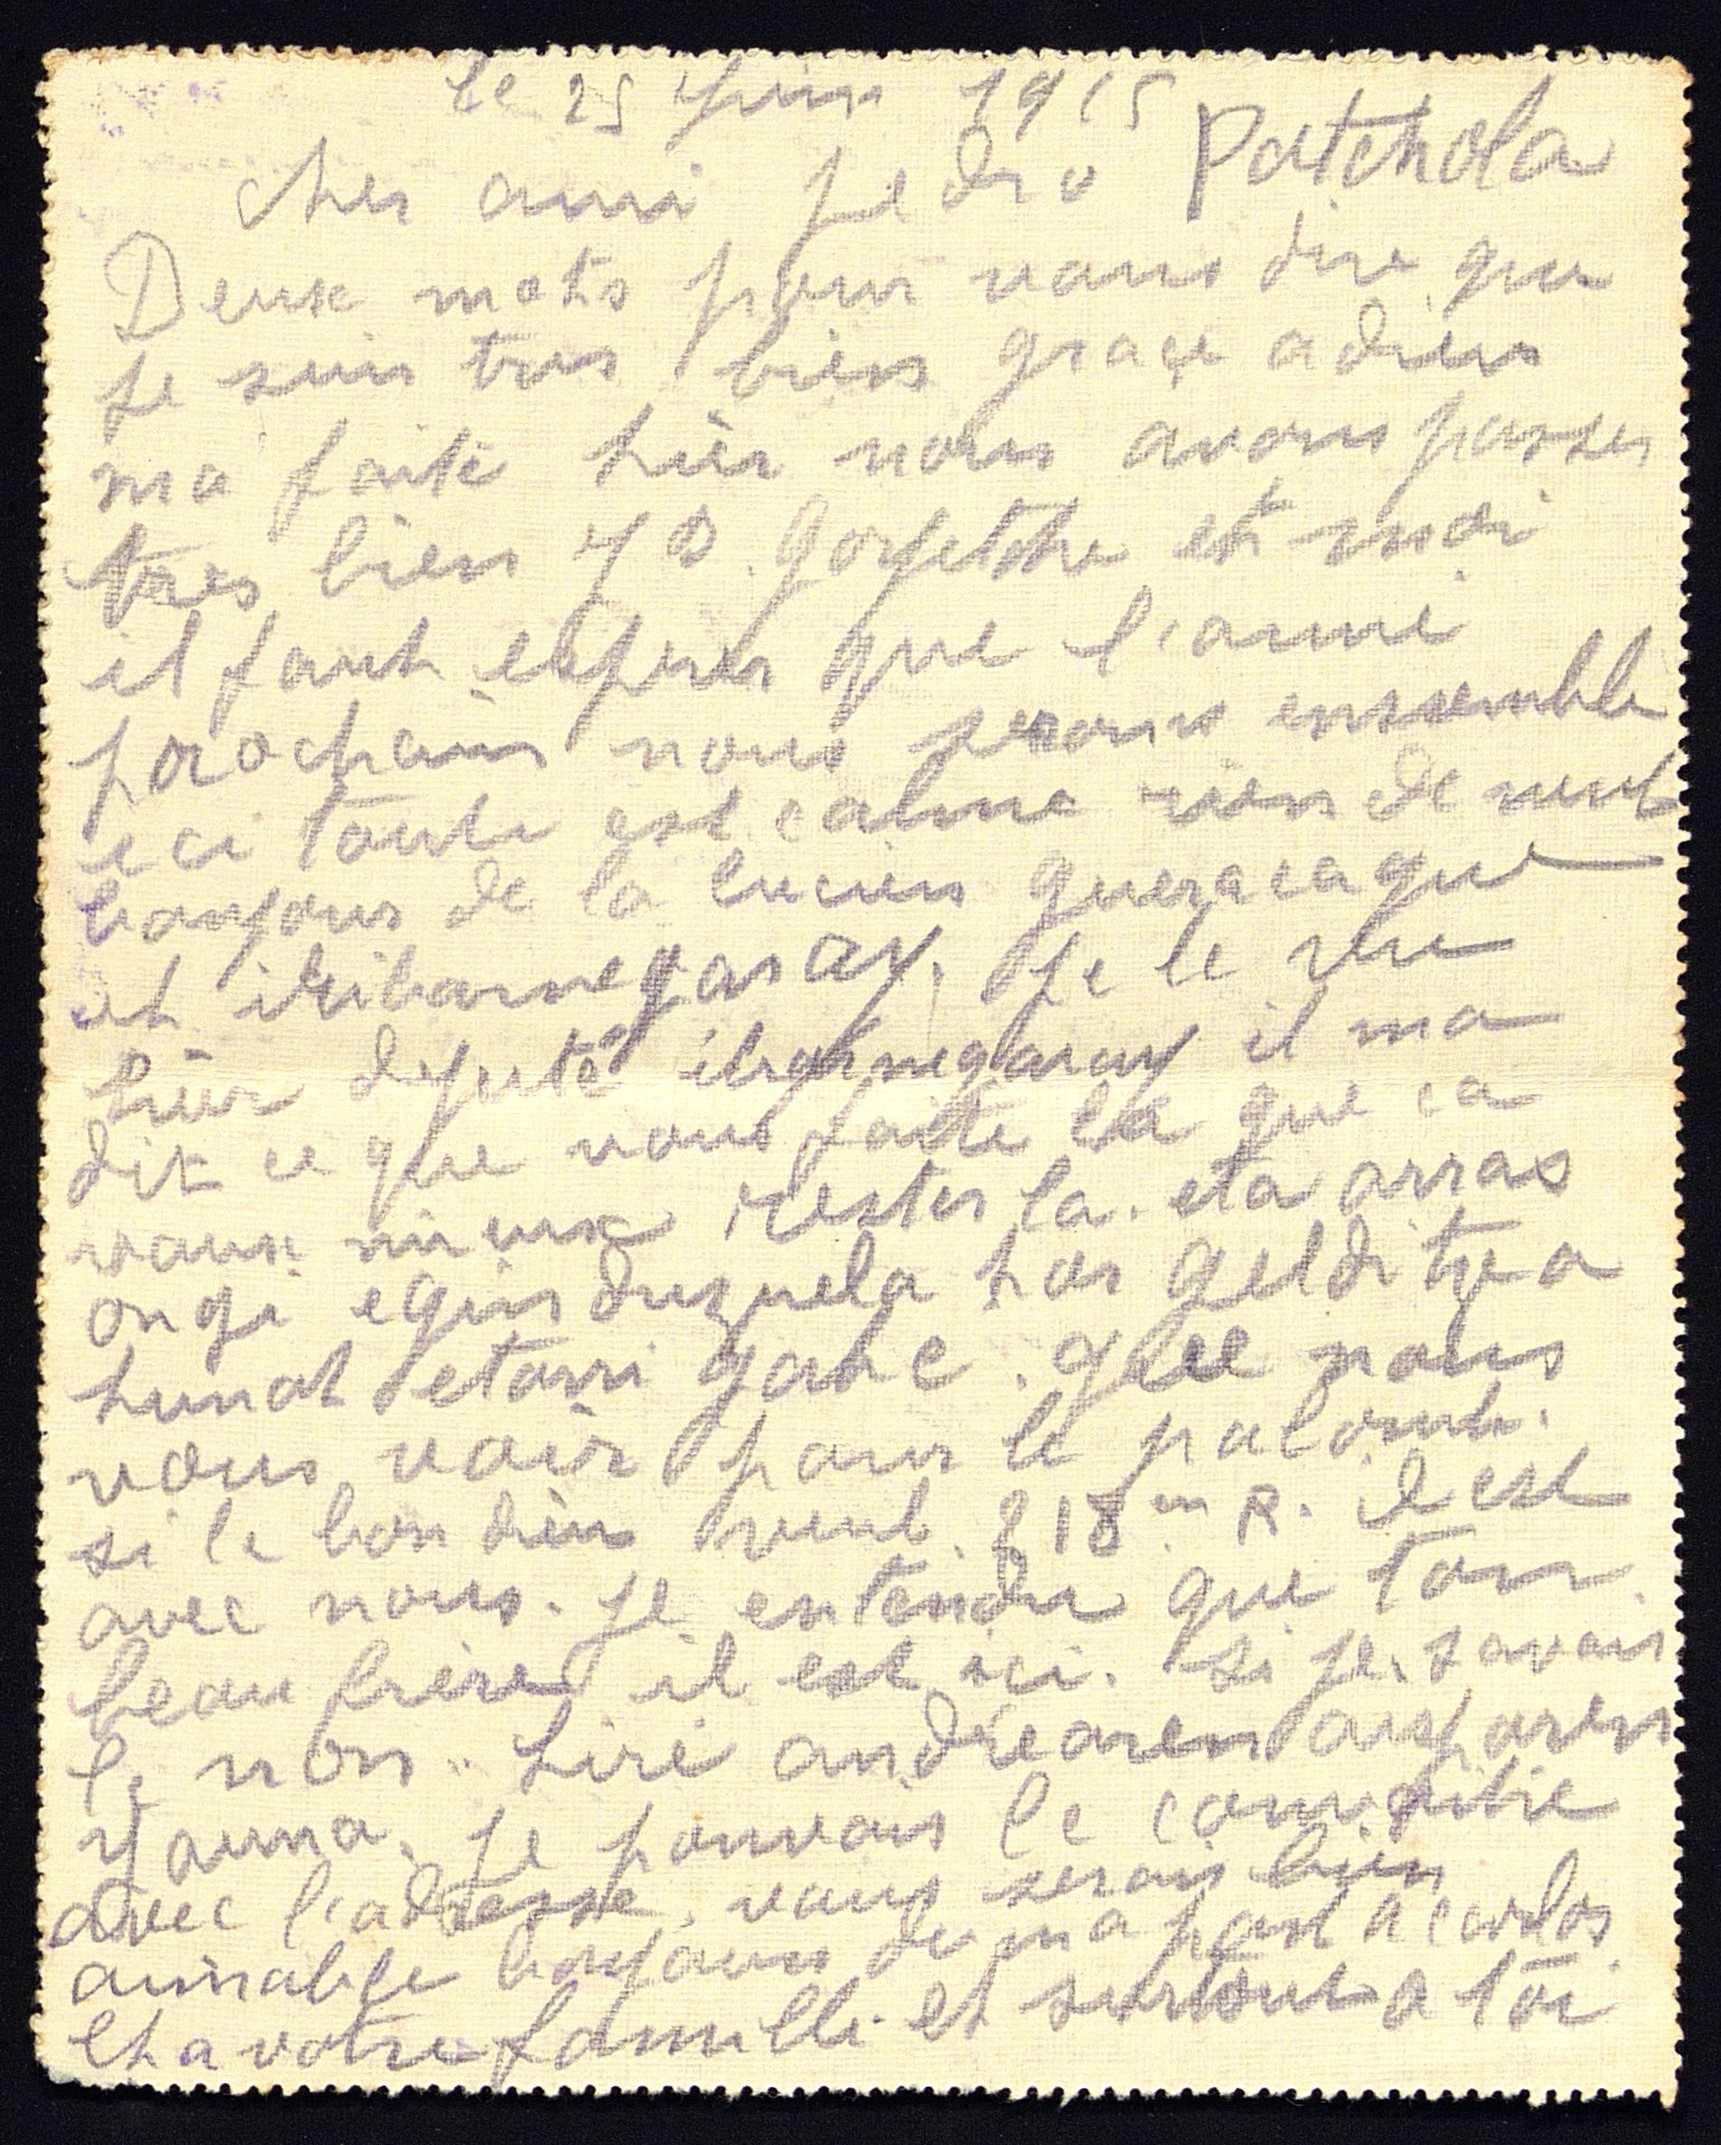 le 25 juin 1915
cher ami pedro Patchola
Deux mots pour vous dire que
je suis tres bien graçe adieu
ma faite hièr nous avons passer
très bien J B. Goyetche et moi
il faut esperer que l'anné
prochain nous serons ensemble
ici toute est calme rien de neut
bonjour de la lucien queracaque
et iribarnegaray. je le vue
hièr deputé ibarnegaray il ma
dit ce que vous faite la que ca
vaux mieux rester la. eta arras
ongi egin duzuela hor gelditzea
hunat etorri gabe. que nous
vous voir pour le palomb.
si le bon dieu veut. 218 em R. il est
avec nous. je entendu que ton
beau frère il est ici. si je savais
le non. hire andrearen aisparen
yauna. je pouvais le
avec l'adresse. vous serais bien
aimablge bonjour de ma part a carlos.
et a votre famille. et surtout a toi